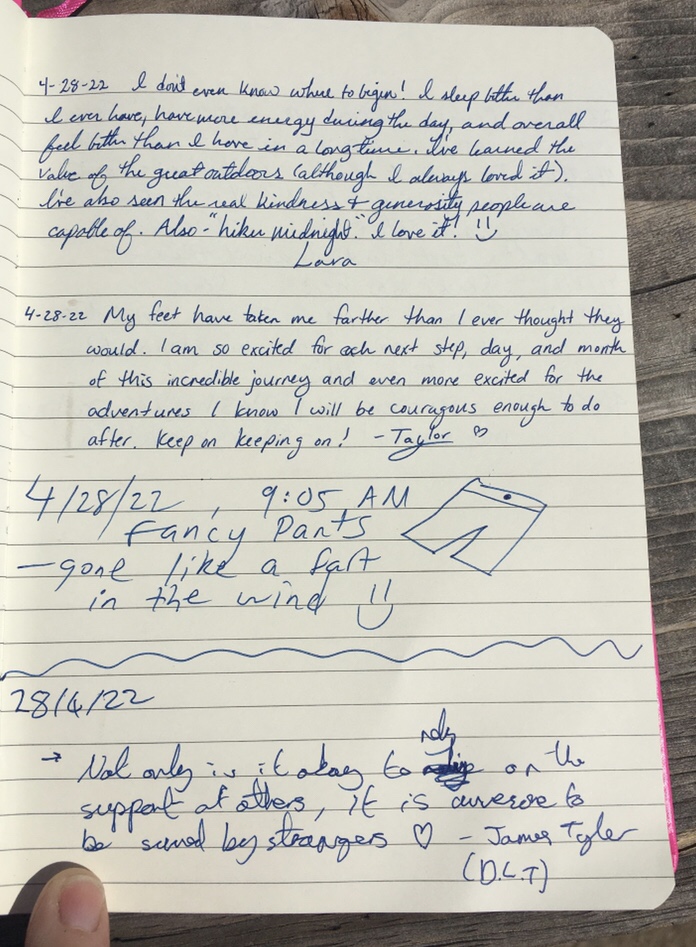 4-28-22 I don't even know where to begin! I sleep better than
I ever have, have more energy during the day, and overall
feel better than I have in a long time. I've learned the
value of the great outdoors (although I always loved it).
I've also seen the real kindness + generosity people are
capable of. Also - "hiker midnight." I love it!
Lara
4-28-22 My feet have taken me farther than I ever thought they
would. I am so excited for each next step, day, and month
of this incredible journey and even more excited for the
adventures I know I will be couragous enough to do
after. Keep on keeping on! - Taylor ♡
4/28/22, 9:05 AM
Fancy Pants
- gone like a fart
in the wind
28/4/22
rely
→ Not only is it okay to on the
support of others, it is awesome to
be by strangers ♡ - James Tyler
(D.L.T)